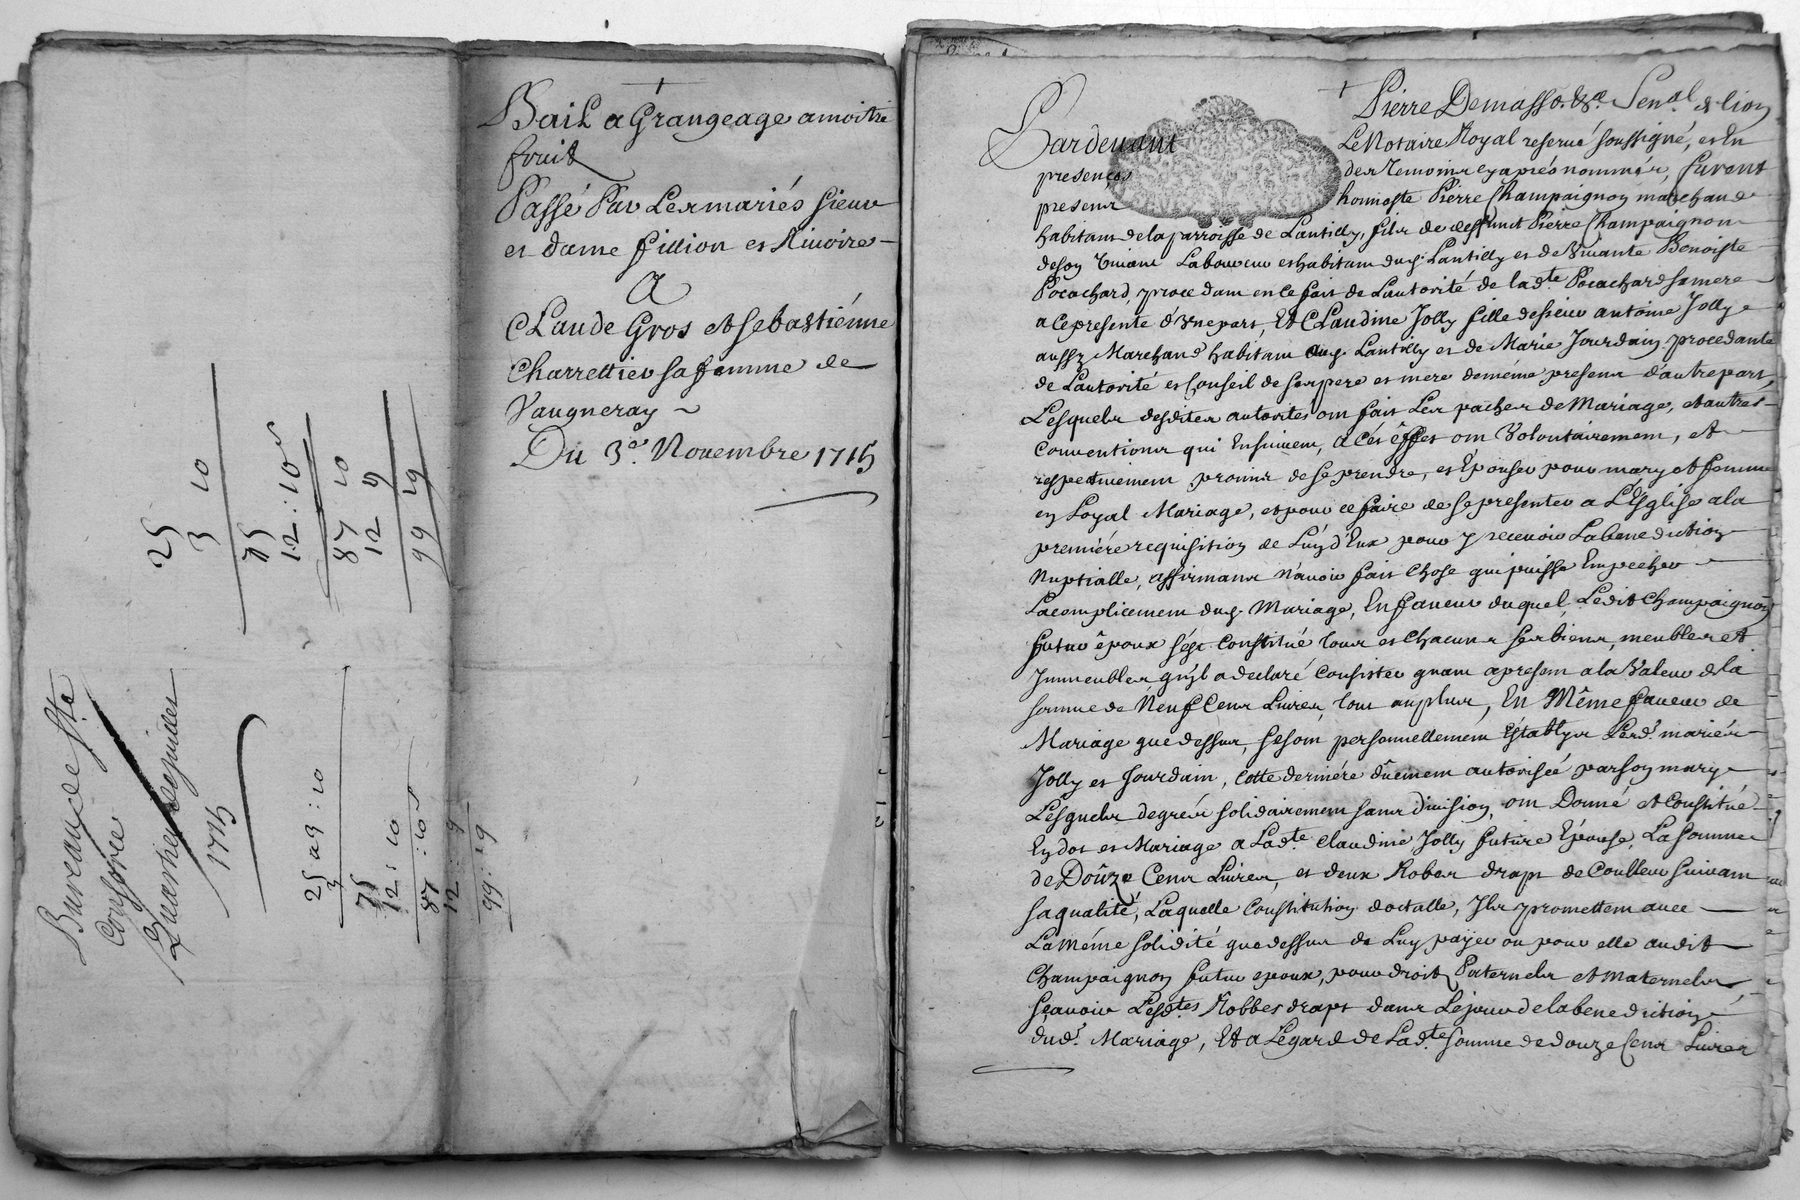 Bail a Grangeage a moitié
fruit
Passé Par Les mariés sieur
et dame fillion et Riuoire
A
Claude Gros et sebastiénne
Charrettier sa femme de
Vaugneray
Du 3e. Nouembre 1715
25
3 10
75
12:10s
87 10
12 9
99 19
Bureau de Ste
Consorce
Quartier de juillet
1715
25 a 3:10
3
75
12:10
87:10s
12:9
99:19
Pierre Demasso &a. Senal de lion
Pardeuant Le Notaire Royal reserué soussigné, et En
presences des Temoins cy aprés nommés, furent
presens honneste Pierre Champaignon marchand
habitant de la parroisse de Lantilly, fils de deffunct Pierre Champaignon
de son viuant Laboureur et habitant dud. Lantilly et de Viuante Benoiste
Pocachard, procedant en ce fait de L'autorité de lad.te Pocachard sa mere
a ce presente d'Vne part, Et Claudine Jolly fille de sieur antoine Jolly
aussy Marchand habitant aud. Lantilly et de Marie Jourdain, procedante
de L'autorité et Conseil de ses pere et mere de meme presens d'autre part,
Lesquels desdites autorités ont fait Les paches de Mariage, et autres
Conuentions qui Ensuiuent, a Cés éffet ont Volontairement, et
respectiuement promis de se prendre, et Epouser pour mary et femme
en Loyal Mariage, et pour ce faire de se presenter a L'Esglise a la
premiére requisition de L'uy d'Eux pour y receuoir La benediction
Nuptialle, affirmans n'auoir fait Chose qui puisse Empecher
L'acomplicement dud. Mariage, En faueur duquel Ledit Champaignon
futur époux s'ést Constitué tous et Chacuns ses biens, meubles et
Immeubles qu'jl a declaré Consister quant a present a la Valeur de la
somme de Neuf Cens Liures, tout au plus, En Même faueur de
Mariage que dessus, se sont personnellement Establys Lesd. mariés
Jolly et Jourdain, Cette derniére dûement autorisée par son mary
Lesquels de gré, solidairement sans diuision, ont Donné et Constitué
En dot et Mariage a Lad.te Claudine Jolly future Epouse, La somme
de Doûze Cens Liures, et deux Robes draps de Couleur suiuant
sa qualité, Laquelle Constitution dotalle, Jls promettent auec
La méme solidité que dessus de Luy paÿer ou pour elle audit
Champaignon futur epoux, pour droits Paternels et maternels,
Sçauoir Lesd.tes Robbes draps dans Le jour de la benediction
dud.t Mariage, Et a L'egard de Lad.te somme de douze Cens Liures